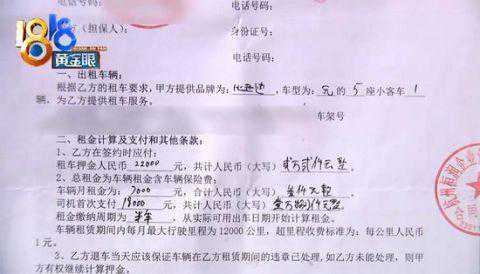 1818
黄金眼
电话号码:
方(担保人):
身份证号:
电话号码:
一、出租车辆:
根据乙方的租车要求,甲方提供品牌为: 比亚迪 ,车型为: 元 的 5 座小客车 1
辆,为乙方提供租车服务。
车架号
二、租金计算及支付和其他条款:
1、乙方在签约时应付:
租车押金人民币 22000 元,共计人民币(大写) 贰万贰仟元整
2、总租金为车辆租金含车辆保险费:
车辆月租金为: 3000 元,合计人民币(大写) 叁仟元整
司机首次支付 18000 元,共计人民币(大写) 壹万捌仟元整
租金缴纳周期为 半年 ,从实际可用出车日期开始计算租金。
车辆租赁期间内每月最大行驶里程为 12000 公里,超里程收费标准为:每公里人民币
1 元。
3、乙方退车当天应该保证车辆在乙方租赁期间的违章已处理,如乙方未能处理,则甲
方有权继续计算押金。